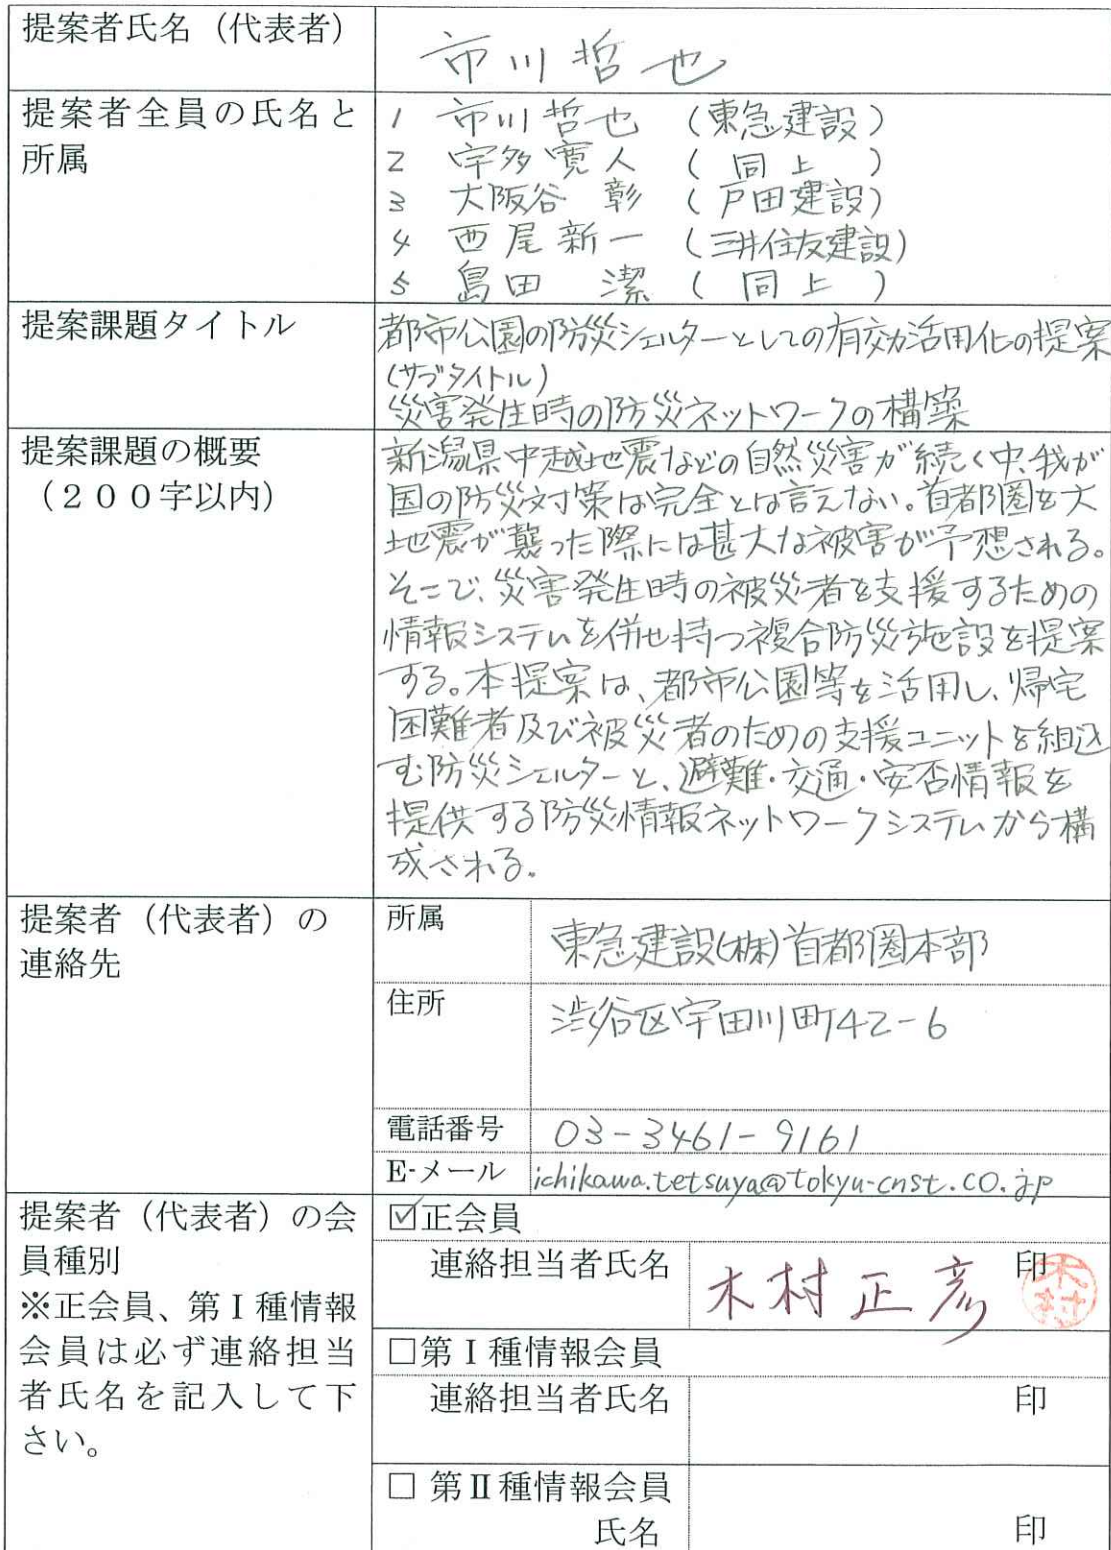 提案者氏名（代表者）
市川哲也
提案者全員の氏名と
所属
1 市川哲也 （東急建設）
2 宇多寛人 （同上）
3 大阪谷 彰 （戸田建設）
4 西尾新一 （三井住友建設）
5 島田 潔 （同上）
提案課題タイトル
都市公園の防災シェルターとしての有効活用化の提案
(サブタイトル)
災害発生時の防災ネットワークの構築
提案課題の概要
（２００字以内）
新潟県中越地震などの自然災害が続く中、我が
国の防災対策は完全とは言えない。首都圏を大
地震が襲った際には甚大な被害が予想される。
そこで、災害発生時の被災者を支援するための
情報システムを併せ持つ複合防災施設を提案
する。本提案は、都市公園等を活用し、帰宅
困難者及び被災者のための支援ユニットを組込
む防災シェルターと、避難・交通・安否情報を
提供する防災情報ネットワークシステムから構
成される。
提案者（代表者）の
連絡先
所属
東急建設(株)首都圏本部
住所
渋谷区宇田川町42-6
電話番号
03-3461-9161
E-メール
ichikawa.tetsuya@tokyu-cnst.co.jp
提案者（代表者）の会
員種別
※正会員、第Ⅰ種情報
会員は必ず連絡担当
者氏名を記入して下
さい。
☑正会員
連絡担当者氏名 木村正彦 印
木村
□第Ⅰ種情報会員
連絡担当者氏名 印
□ 第Ⅱ種情報会員
氏名 印